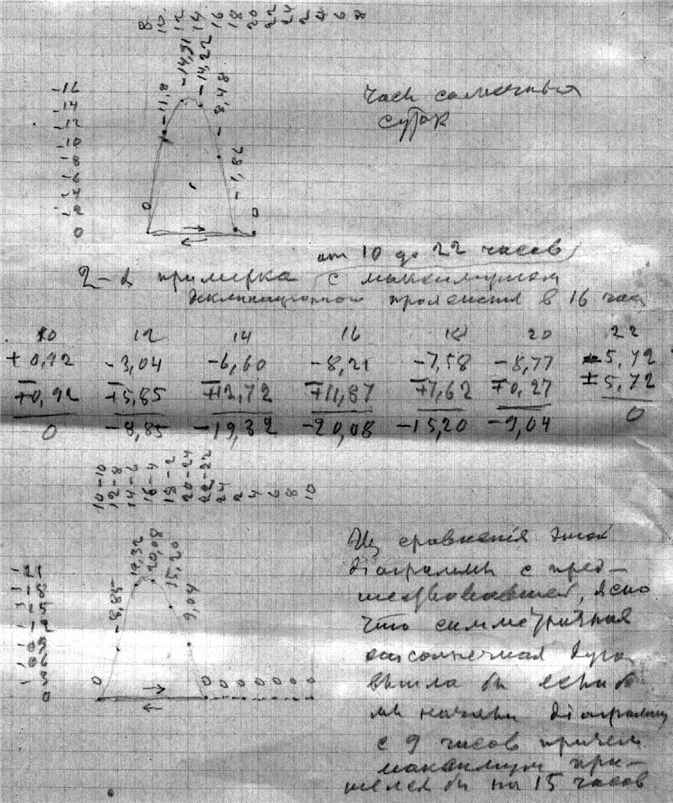 8 10 12 14 16 18 20 22 24 2 4 6 8
0 -11,8 -14,91 -14,22 -8,48 -1,82 0
-16
-14
-12
-10
-8
-6
-4
-2
0
Часы солнечных
суток
от 10 до 22 часов
2-я примерка с максимумом
деклинационного в 16 час
10 12 14 16 18 20 22
+0,92 -3,04 -6,60 -8,21 -7,58 -8,77 -5,72
∓0,92 ∓5,85 ∓12,72 ∓11,87 ∓7,62 ∓0,27 ±5,72
0 -8,85 -19,32 -20,08 -15,20 -9,04 0
10-10 12-8 14-6 16-4 18-2 20-24 22-22 24 2 4 6 8 10
0 -8,85 19,32 20,08 15,20 9,04 0 0 0 0 0 0 0 0
Из сравненія этой
діаграммы с пред-
шествовавшей, ясно
что симметричная
солнечная дуга
вышла бы если б
мы начали діаграмму
с 9 часов причем
максимум при-
шелся бы на 15 часов